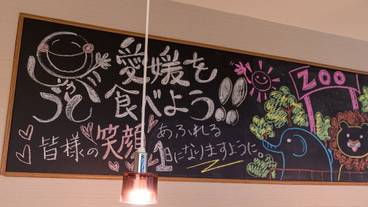 もっと
愛媛を
食べよう!!
皆様の笑顔あふれる
1日になりますように。
ZOO